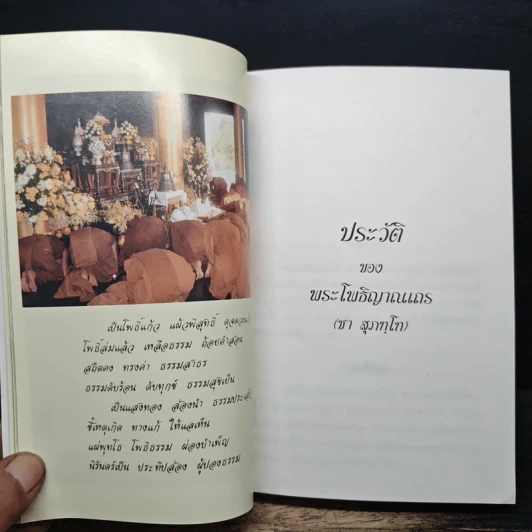 เป็นโพธิ์แก้ว แผ้วพิสุทธิ์
โพธิ์ล่มแล้ว เหลือธรรม ถ้อยคำสอน
สถิตคง ทรงค่า ธรรมสาธร
ธรรมดับร้อน ดับทุกข์ ธรรมสุขเย็น
เป็นแสงทอง ส่องนำ
ชี้เหตุเกิด ทางแก้ ให้แลเห็น
แผ่พุทโธ โพธิธรรม ผ่องบำเพ็ญ
นิรันดร์เป็น ประทีปส่อง ผู้ปองธรรม
ประวัติ
ของ
พระโพธิญาณเถร
(ชา สุภทฺโท)